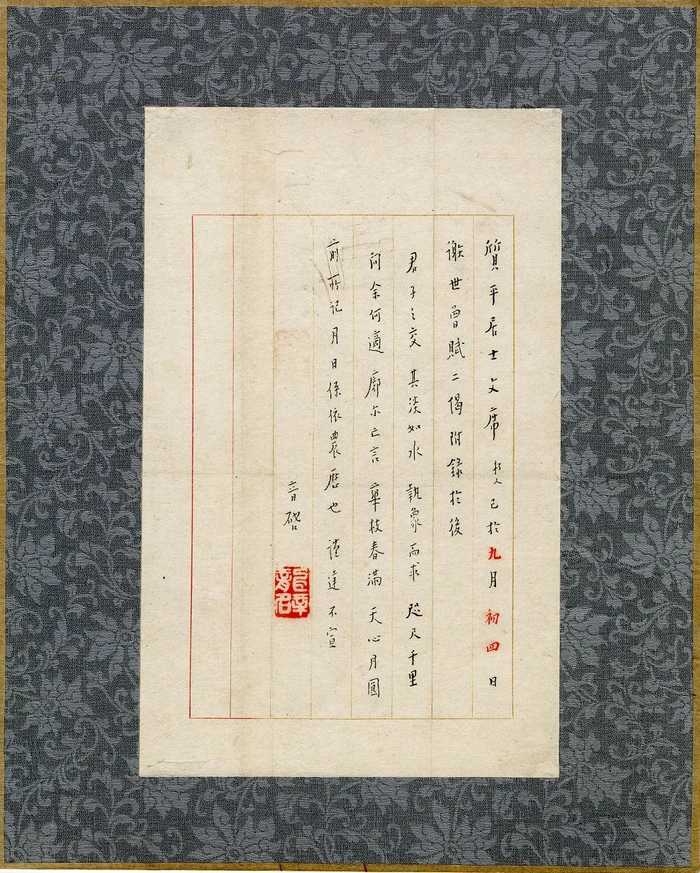 質平居士文席 朽人已於九月初四日
謝世曾賦二偈附錄於後
君子之交 其淡如水 執象而求 咫尺千里
問余何適 廓尒亡言 華枝春滿 天心月圓
前所記月日係依農曆也 謹達不宣
音啓